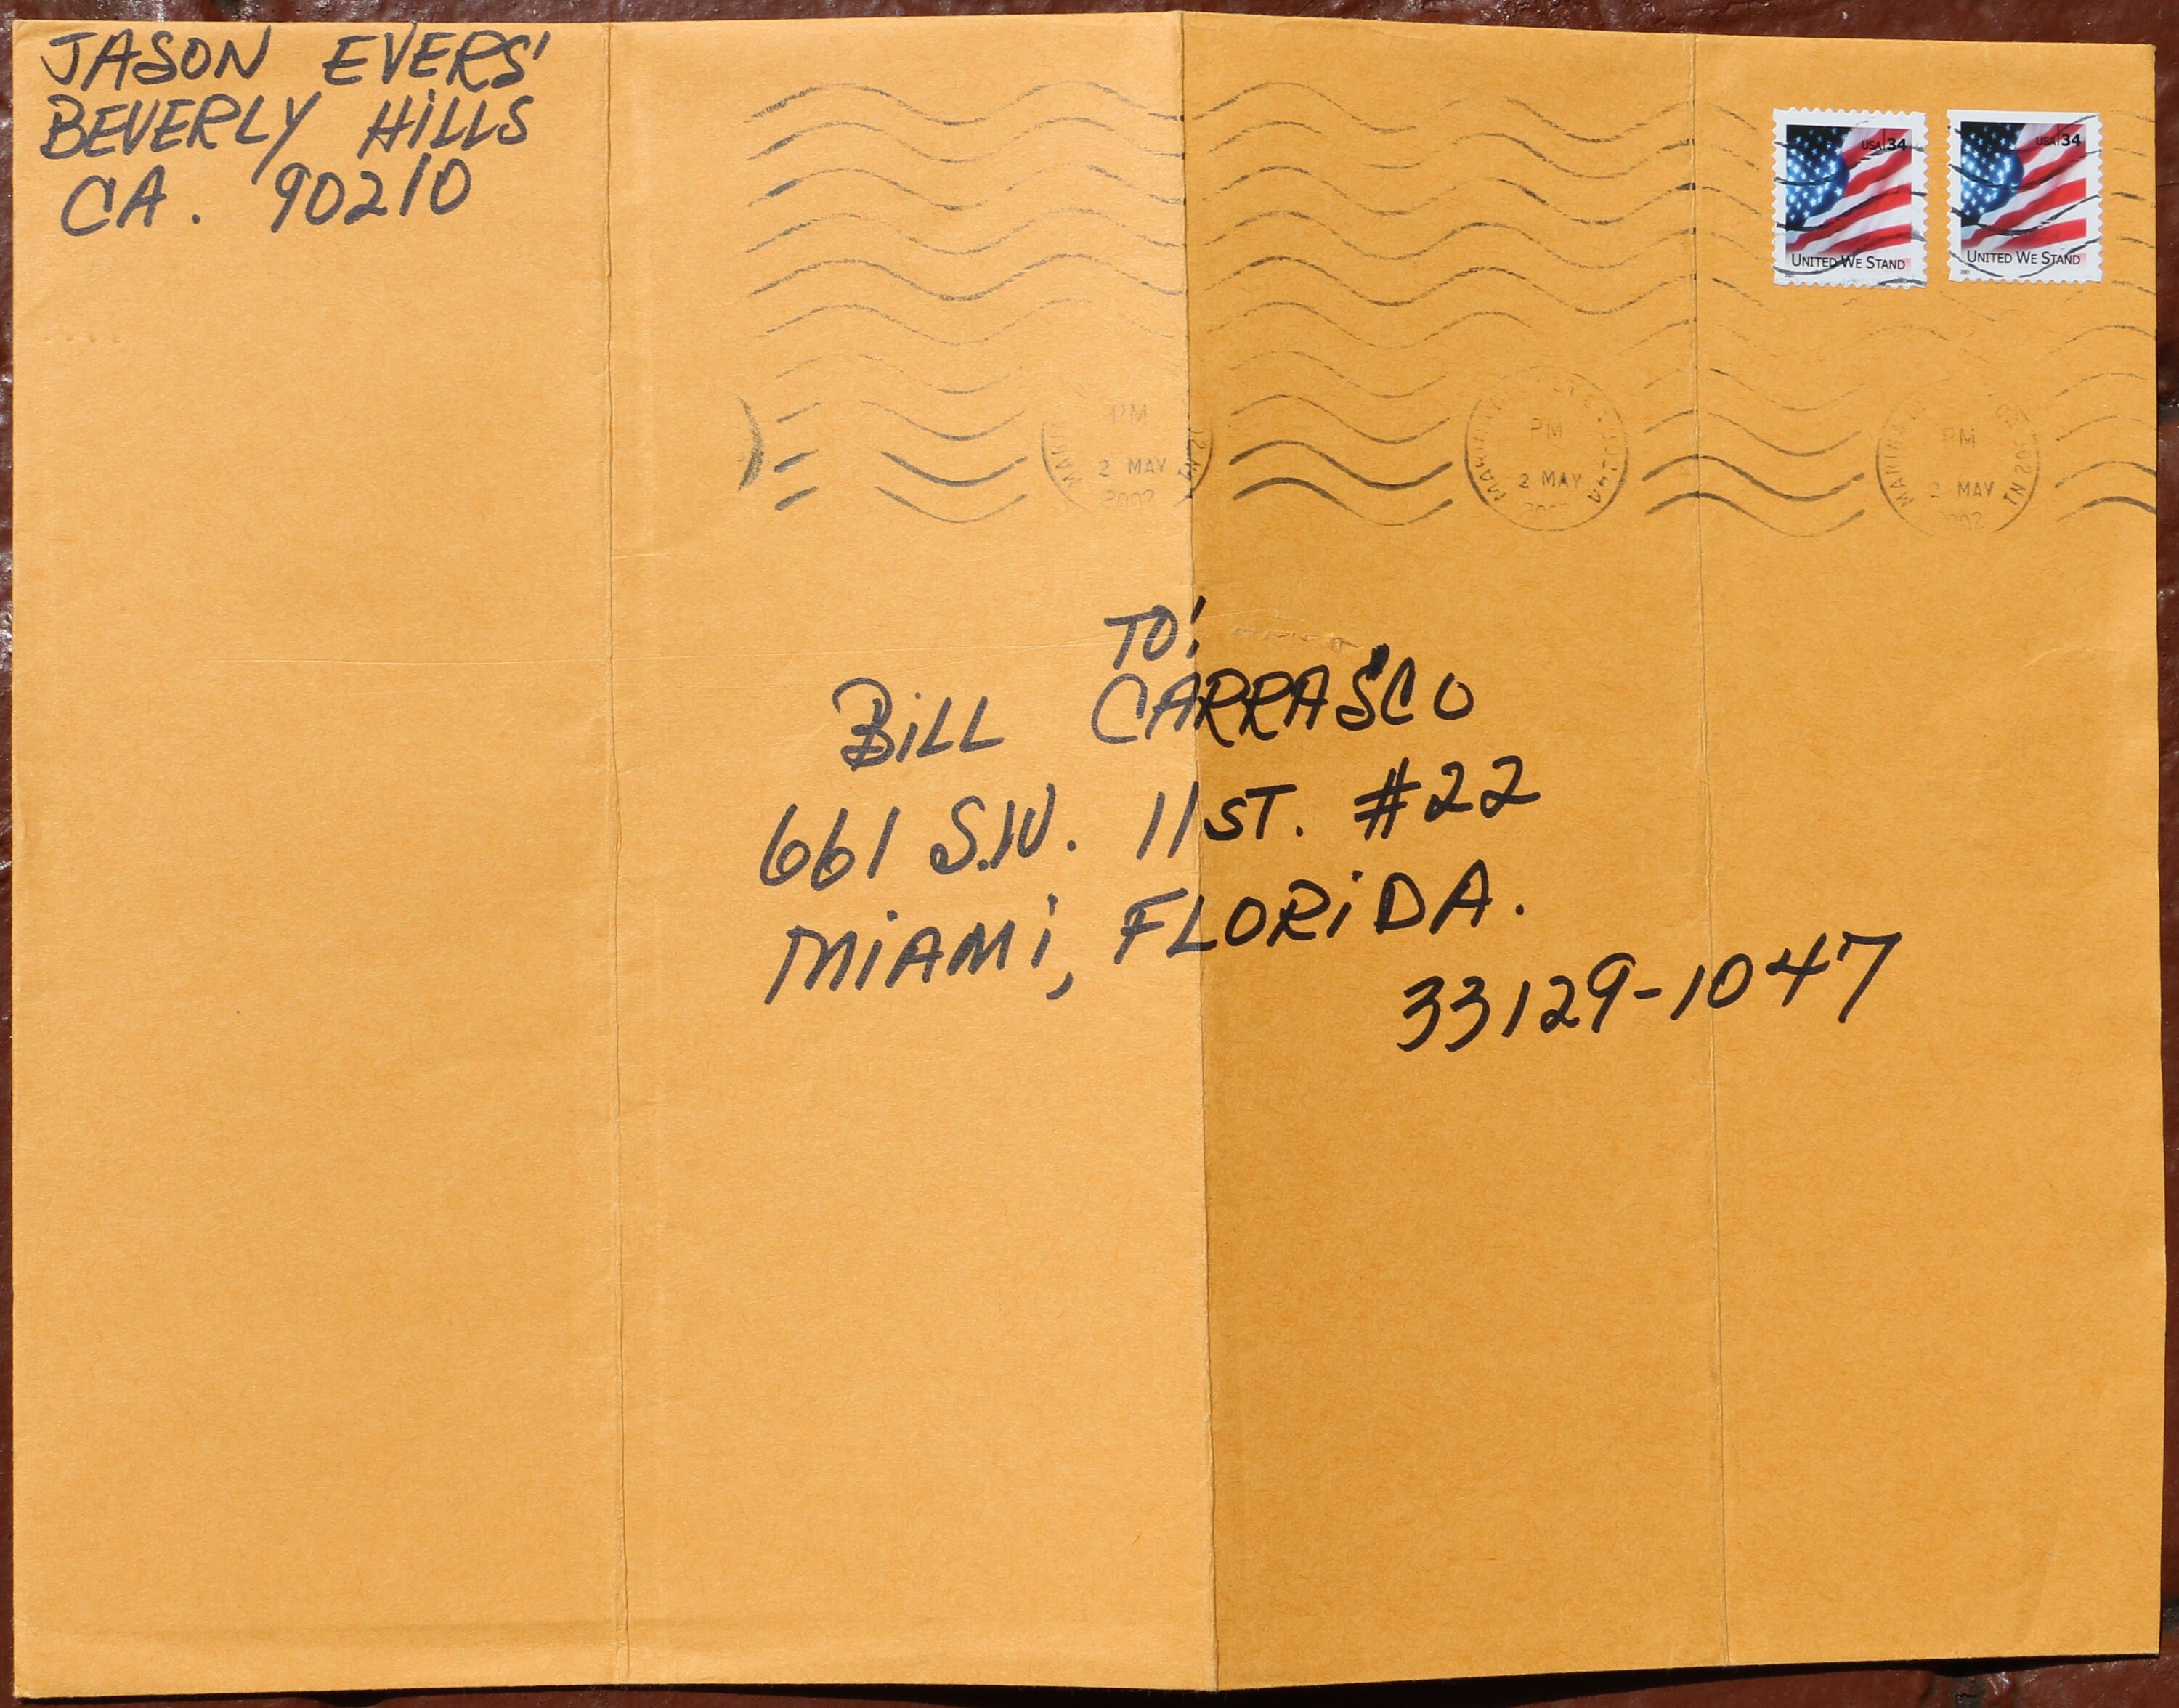 JASON EVERS'
BEVERLY HILLS
CA. 90210
USA 34
UNITED WE STAND
USA 34
UNITED WE STAND
PM
2 MAY
2002
PM
2 MAY
PM
2 MAY
2002
TO:
BILL CARRASCO
661 S.W. 11 ST. #22
MIAMI, FLORIDA.
33129-1047